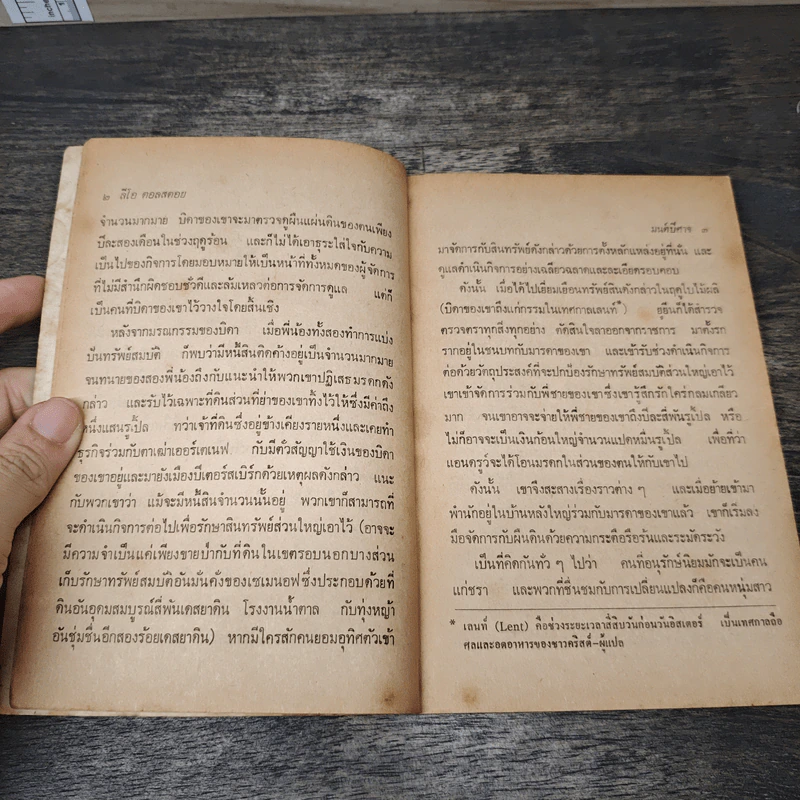 inches
๒ ลีโอ ตอลสตอย
จำนวนมากมาย บิดาของเขาจะมาตรวจดูผืนแผ่นดินของตนเพียง
ปีละสองเดือนในช่วงฤดูร้อน และก็ไม่ได้เอาธุระใส่ใจกับความ
เป็นไปของกิจการโดยมอบหมายให้เป็นหน้าที่ทั้งหมดของผู้จัดการ
ที่ไม่มีสำนึกผิดชอบชั่วดีและล้มเหลวต่อการจัดการดูแล แต่ก็
เป็นคนที่บิดาของเขาไว้วางใจโดยสิ้นเชิง
หลังจากมรณกรรมของบิดา เมื่อพี่น้องทั้งสองทำการแบ่ง
ปันทรัพย์สมบัติ ก็พบว่ามีหนี้สินติดค้างอยู่เป็นจำนวนมากมาย
จนทนายของสองพี่น้องถึงกับแนะนำให้พวกเขาปฏิเสธมรดกดัง
กล่าว และรับไว้เฉพาะที่ดินส่วนที่ย่าของเขาทิ้งไว้ให้ซึ่งมีค่าถึง
หนึ่งแสนรูเบิ้ล ทว่าเจ้าที่ดินซึ่งอยู่ข้างเคียงรายหนึ่งและเคยทำ
ธุรกิจร่วมกับตาเฒ่าเออร์เตเนฟ กับมีตั๋วสัญญาใช้เงินของบิดา
ของเขาอยู่และมายังเมืองปีเตอร์สเบิร์กด้วยเหตุผลดังกล่าว แนะ
กับพวกเขาว่า แม้จะมีหนี้สินจำนวนนั้นอยู่ พวกเขาก็สามารถที่
จะดำเนินกิจการต่อไปเพื่อรักษาสินทรัพย์ส่วนใหญ่เอาไว้ (อาจจะ
มีความจำเป็นแค่เพียงขายป่ากับที่ดินในเขตรอบนอกบางส่วน
เก็บรักษาทรัพย์สมบัติอันมั่นคั่งของเซเมนอฟซึ่งประกอบด้วยที่
ดินอันอุดมสมบูรณ์สี่พันเดสยาติน โรงงานน้ำตาล กับทุ่งหญ้า
อันชุ่มชื่นอีกสองร้อยเดสยาติน) หากมีใครสักคนยอมอุทิศตัวเข้า
มนต์ปีศาจ ๓
มาจัดการกับสินทรัพย์ดังกล่าวด้วยการตั้งหลักแหล่งอยู่ที่นั่น และ
ดูแลดำเนินกิจการอย่างเฉลียวฉลาดและละเอียดรอบคอบ
ดังนั้น เมื่อได้ไปเยี่ยมเยือนทรัพย์สินดังกล่าวในฤดูใบไม้ผลิ
(บิดาของเขาถึงแก่กรรมในเทศกาลเลนท์*) ยูยีนก็ได้สำรวจ
ตรวจตราทุกสิ่งทุกอย่าง ตัดสินใจลาออกจากราชการ มาตั้งรก
รากอยู่ในชนบทกับมารดาของเขา และเข้ารับช่วงดำเนินกิจการ
ต่อด้วยวัตถุประสงค์ที่จะปกป้องรักษาทรัพย์สมบัติส่วนใหญ่เอาไว้
เขาเข้าจัดการร่วมกับพี่ชายของเขาซึ่งเขารู้สึกรักใคร่กลมเกลียว
มาก จนเขาอาจจะจ่ายให้พี่ชายของเขาถึงปีละสี่พันรูเบิ้ล หรือ
ไม่ก็อาจจะเป็นเงินก้อนใหญ่จำนวนแปดหมื่นรูเบิ้ล เพื่อที่ว่า
แอนดรูว์จะได้โอนมรดกในส่วนของตนให้กับเขาไป
ดังนั้น เขาจึงสะสางเรื่องราวต่าง ๆ และเมื่อย้ายเข้ามา
พำนักอยู่ในบ้านหลังใหญ่ร่วมกับมารดาของเขาแล้ว เขาก็เริ่มลง
มือจัดการกับผืนดินด้วยความกระตือรือร้นและระมัดระวัง
เป็นที่คิดกันทั่ว ๆ ไปว่า คนที่อนุรักษ์นิยมมักจะเป็นคน
แก่ชรา และพวกที่ชื่นชมกับการเปลี่ยนแปลงก็คือคนหนุ่มสาว
* เลนท์ (Lent) คือช่วงระยะเวลาสี่สิบวันก่อนวันอีสเตอร์ เป็นเทศกาลถือ
ศีลและอดอาหารของชาวคริสต์–ผู้แปล